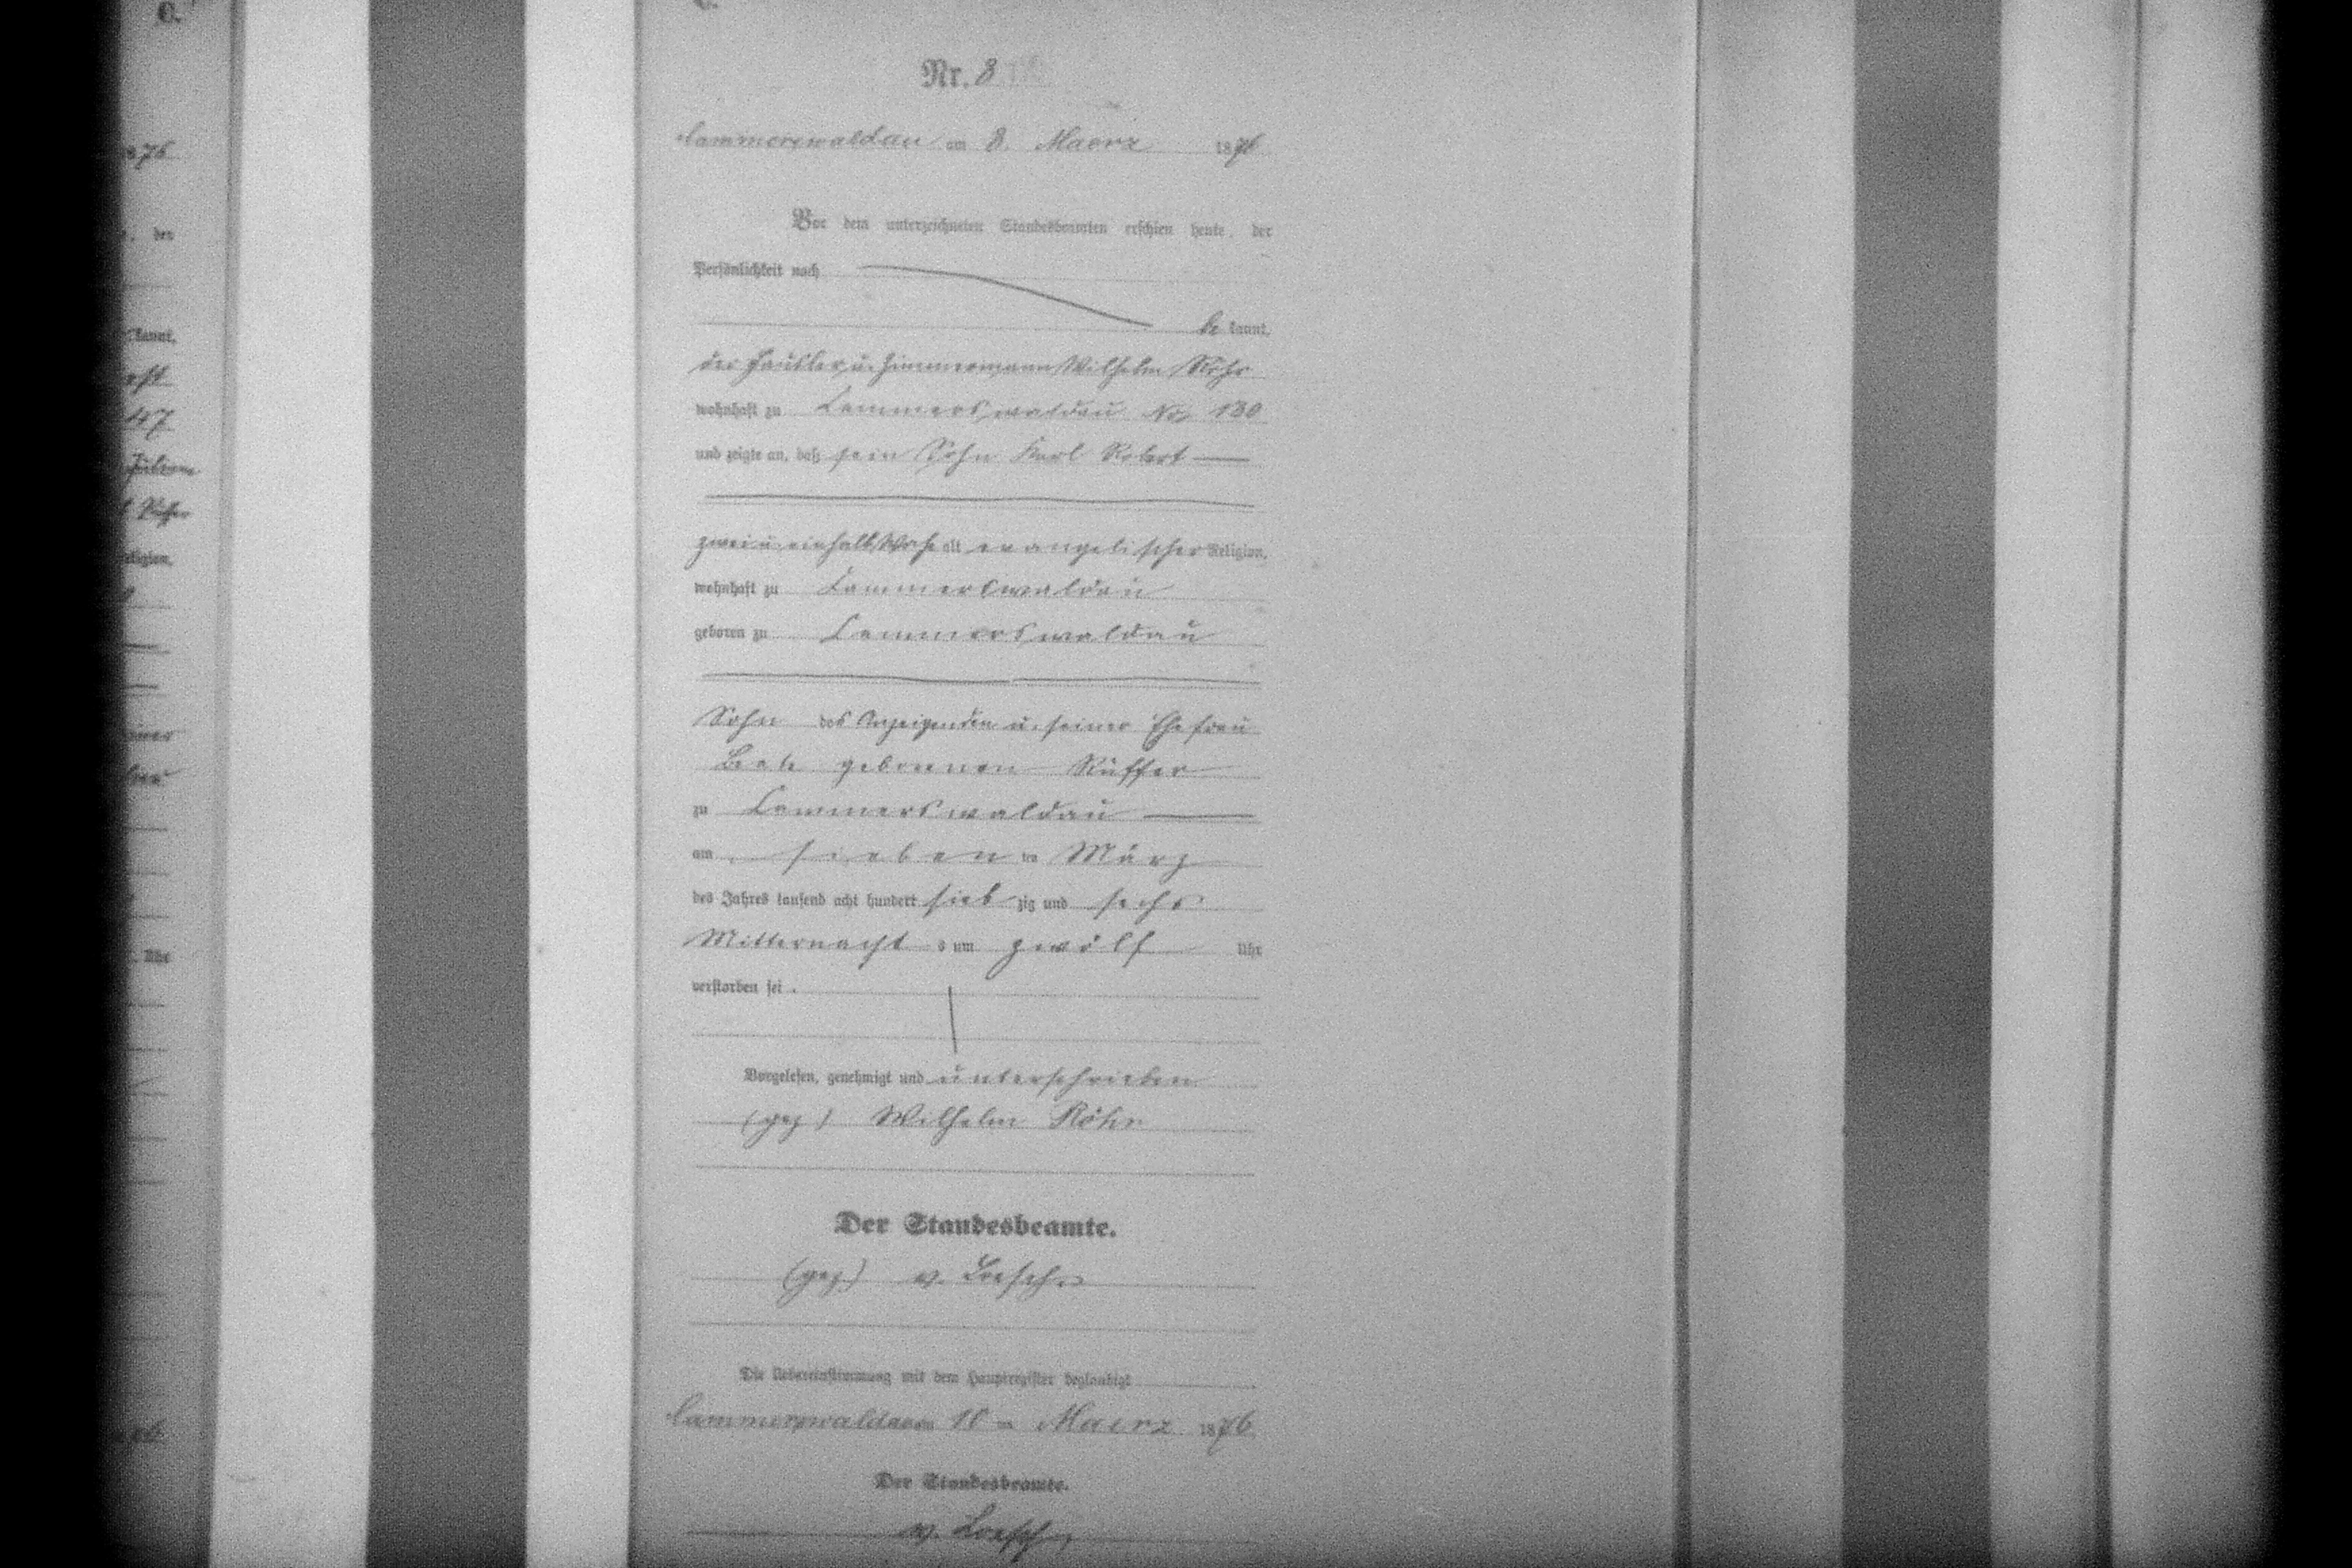 C.
Nr. 8
Cammerswaldau am 8. Maerz 1876
Vor dem unterzeichneten Standesbeamten erschien heute, der
Persönlichkeit nach
be kannt,
der Häusler u. Zimmermann Wilhelm Röhr
wohnhaft zu Cammerswaldau No 130
und zeigte an, daß sein Sohn Karl Robert
zwei u. einhalb Woche alt evangelischer Religion,
wohnhaft zu Cammerswaldau
geboren zu Cammerswaldau
Sohn des Anzeigenden u. seiner Ehefrau
Beate geborenen Rüffer
zu Cammerswaldau
am sieben ten März
des Jahres tausend acht hundert sieb zig und sechs
Mitternacht s um zwölf Uhr
verstorben sei.
Vorgelesen, genehmigt und unterschrieben
(gez) Wilhelm Röhr
Der Standesbeamte.
(gez) v. Loesch
Die Uebereinstimmung mit dem Hauptregister beglaubigt
Cammerswaldau am Maerz 1876
Der Standesbeamte.
v. Loesch